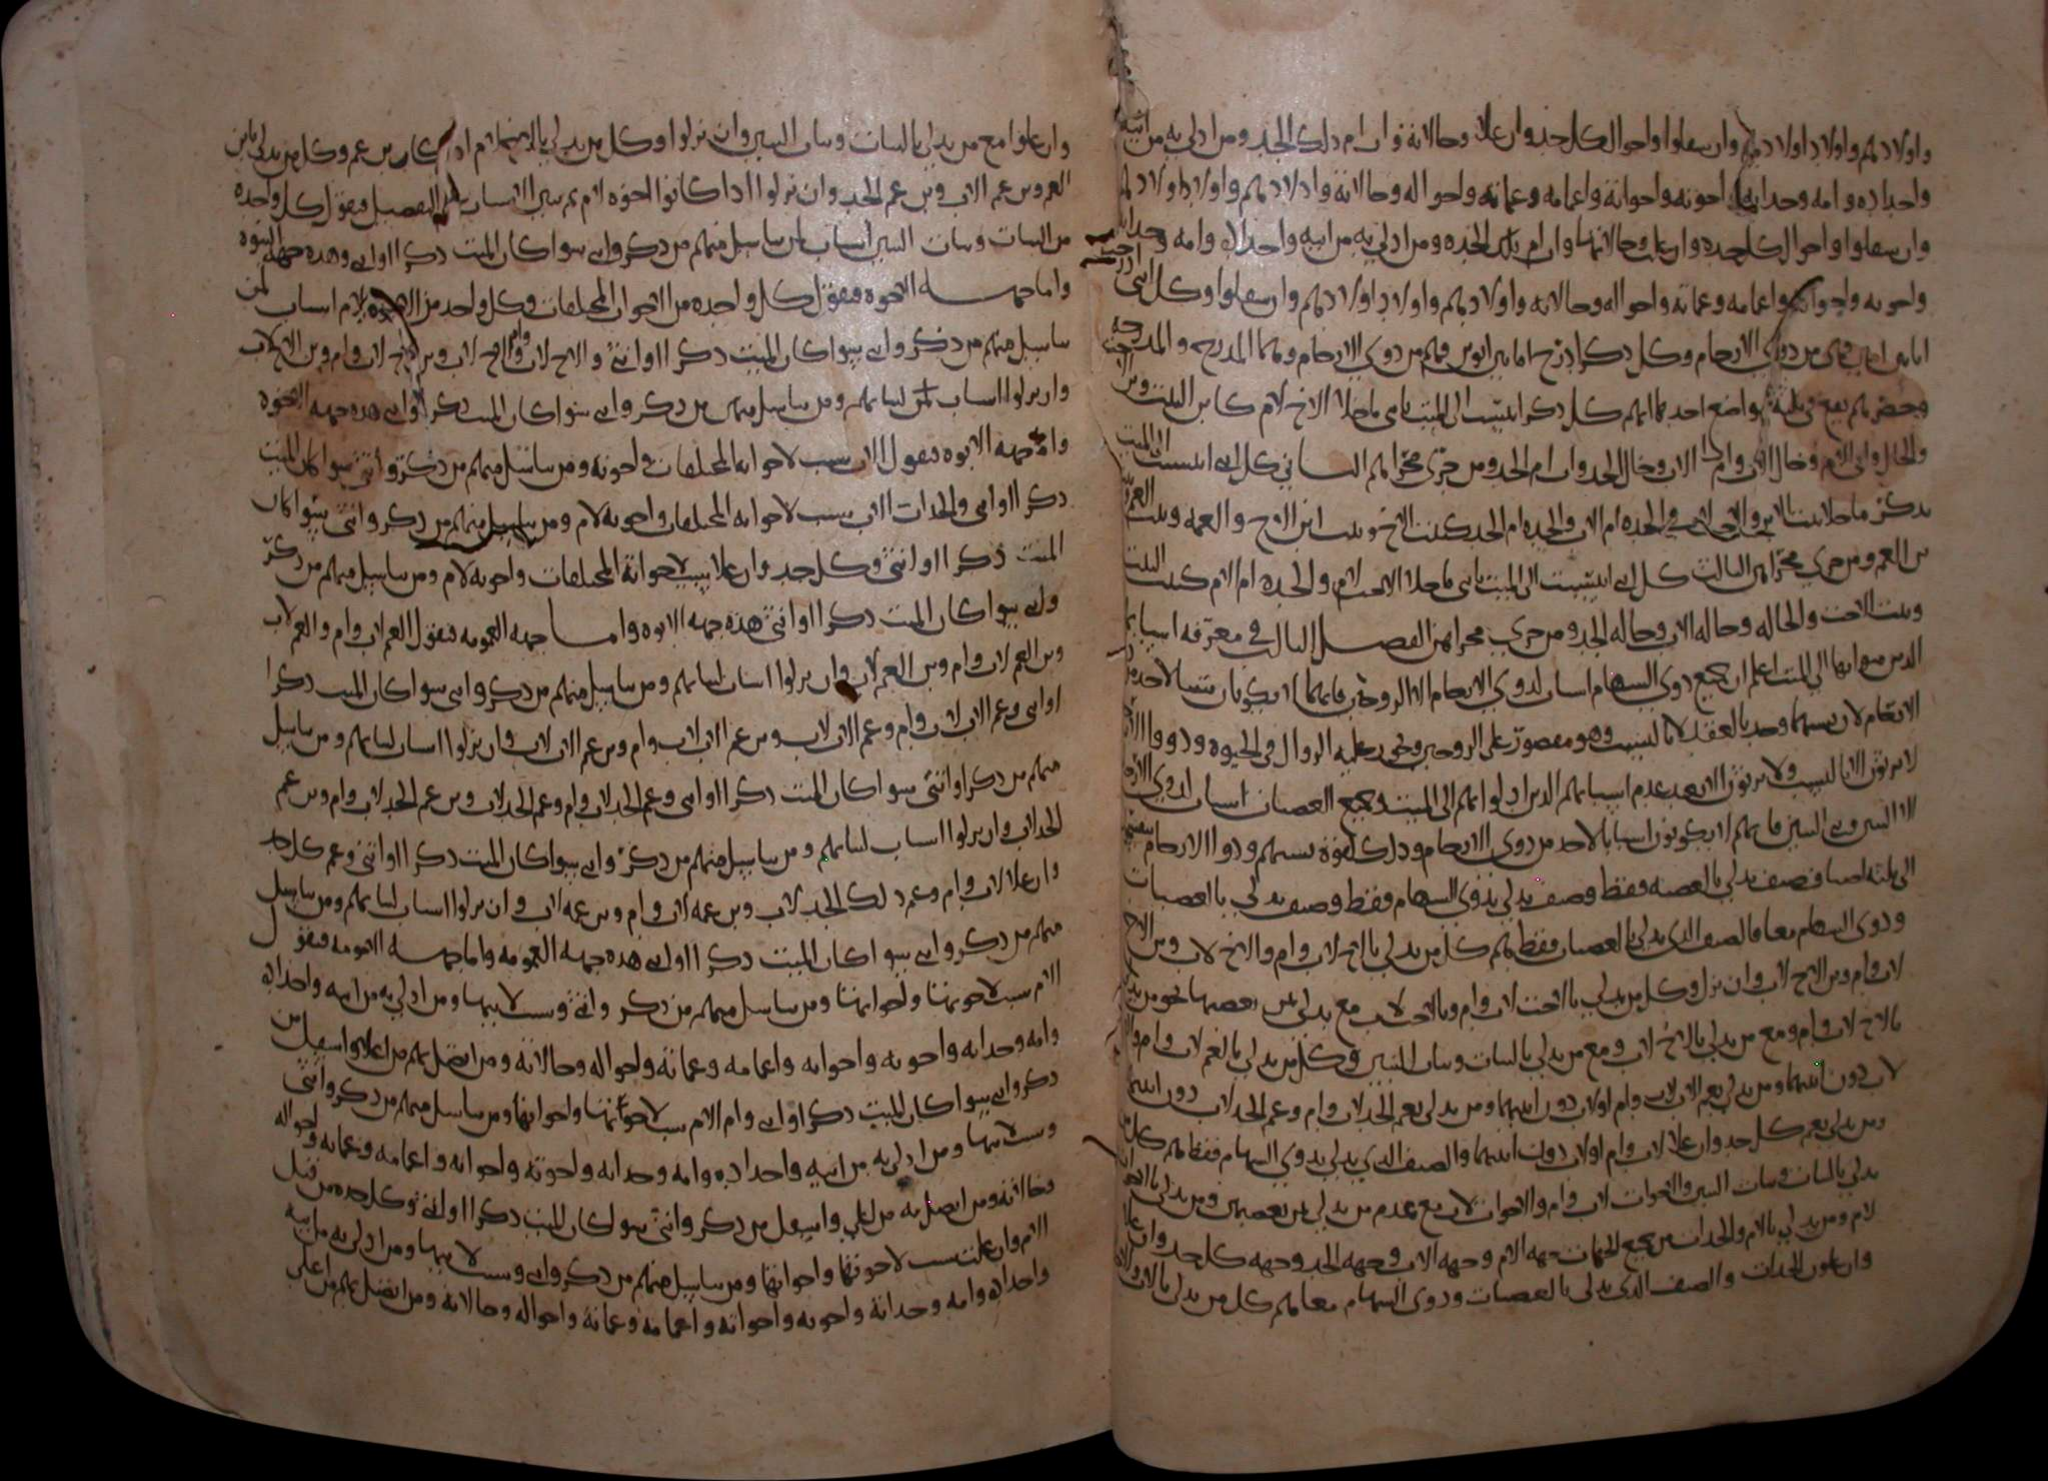 واولادهم واولاد اولادهم وان سفلوا واخوال كل جد وان علا وخالاته وان ام ذلك الجد ومن ادلى به من ابيه
واجداده وامه وجداته واخوته واخواته واعمامه وعماته واخواله وخالاته واولادهم واولاد اولادهم
وان سفلوا واخوال كل جده وان علت وخالاتها وان ام تلك الجده ومن ادلى به من ابيه واجداده وامه وجداته
واخوته واخواته واعمامه وعماته واخواله وخالاته واولادهم واولاد اولادهم وان سفلوا وكل انثى
من ذوي الارحام وكل ذكر ادرج اما بين ابوين فهم من ذوي الارحام
كل ذكر انتسب الى الميت بانثى ما خلا الاخ لام كابن البنت وبن
والخال وابي الام وخال الاب وام الاب وخال الجد وان ام الجد ومن جرى مجراهم الثاني كل انثى انتسبت الى الميت
بذكر ما خلا بنت الابن والاخت لاب والجده ام الاب والجده ام الجد كبنت الاخ وبنت ابن الاخ والعمه وبنت العم
بن العم ومن جرى مجراهن الثالث كل انثى انتسبت الى الميت بانثى ما خلا الاخت لام والجده ام الام كبنت البنت
وبنت الاخت والخاله وخاله الاب وخاله الجد ومن جرى مجراهن الفصل الثالث في معرفه اسبابهم
الذين يدلون بها الى الميت اعلم ان جميع ذوي السهام اسباب لذوي الارحام الا الزوجين فانهما لا يكونان سببا لاحد من ذوي
الارحام لان سببهما وجد بالعقد لا بالنسب وهو مقصور على الزوجين وقد يطرا عليه الزوال في الحيوه وذووا الارحام
لا يرثون الا بالنسب ولا يرثون الا بعد عدم اسبابهم الذين ادلوا بهم الى الميت وجميع العصبات اسباب لذوي الارحام
الا البنين وبني البنين فانهم لا يكونون اسبابا لاحد من ذوي الارحام وذلك لقوة نسبهم وذووا الارحام
الى ثلثه اصناف صنف يدلي بالعصبه فقط وصنف يدلي بذوي السهام فقط وصنف يدلي بالعصبات
وذوي السهام معا فالصنف الذي يدلي بالعصبات فقط هم كل من يدلي بالاخ لاب وام والاخ لاب وبن الاخ
لاب وام وبن الاخ لاب وان نزل وكل من يدلي بالاخت لاب وام وبالاخت لاب مع من يدلي بمن يعصبها نحو من يدلي
بالاخ لاب وام ومع من يدلي بالاخ لاب ومع من يدلي بالبنات وبنات البنين وكل من يدلي بالعم لاب وام والعم
لاب دون ابنيهما ومن يدلي بعم الاب لاب وام او لاب دون ابنيهما ومن يدلي بعم الجد لاب وام وعم الجد لاب دون ابنيهما
ومن يدلي بعم كل جد وان علا لاب وام او لاب دون ابنيهما والصنف الذي يدلي بذوي السهام فقط هم كل من
يدلي بالبنات وبنات البنين والاخوات لاب وام والاخوات لاب مع عدم من يدلي بمن يعصبهن ومن يدلي بالاخوة
لام ومن يدلي بالام والجدات من جميع الجهات جهه الام وجهه الاب وجهه الجد وجهه كل جد وان علا
وان علون الجدات والصنف الذي يدلي بالعصبات وذوي السهام معا هم كل من يدلي بالاب والاجداد
وان علوا مع من يدلي بالبنات وبنات البنين وان نزلوا وكل من يدلي بالاخ لام اذا كان بن عم وكل من يدلي بابن
العم وبن عم الاب وبن عم الجد وان نزلوا اذا كانوا اخوه لام ثم نبين الاسباب على التفصيل فنقول كل واحده
من البنات وبنات البنين اسباب لمن تناسل منهم من ذكر وانثى سوا كان الميت ذكرا او انثى وهذه جهه البنوه
واما جهه الاخوه فنقول كل واحده من الاخوات المختلفات وكل واحد من الاخوه لام اسباب لمن
تناسل منهم من ذكر وانثى سوا كان الميت ذكرا او انثى والاخ لاب وام والاخ لاب وبن الاخ لاب وام وبن الاخ لاب
وان نزلوا اسباب لمن لبناتهم ومن تناسل منهن من ذكر وانثى سوا كان الميت ذكرا او انثى هذه جهه الاخوه
واما جهه الابوه فنقول الاب سبب لاخواته المختلفات واخوته ومن تناسل منهم من ذكر وانثى سوا كان الميت
ذكرا او انثى والجدات الاب سبب لاخواته المختلفات واخوته لام ومن تناسل منهم من ذكر وانثى سوا كان
الميت ذكرا او انثى وكل جد وان علا سبب لاخواته المختلفات واخوته لام ومن تناسل منهم من ذكر
وانثى سوا كان الميت ذكرا او انثى هذه جهه الابوه واما جهه العمومه فنقول العم لاب وام والعم لاب
وبن العم لاب وام وبن العم لاب وان نزلوا اسباب لبناتهم ومن تناسل منهم من ذكر وانثى سوا كان الميت ذكرا
او انثى وعم الاب لاب وام وعم الاب لاب وبن عم الاب لاب وام وبن عم الاب لاب وان نزلوا اسباب لبناتهم ومن تناسل
منهم من ذكر او انثى سوا كان الميت ذكرا او انثى وعم الجد لاب وام وعم الجد لاب وبن عم الجد لاب وام وبن عم
الجد لاب وان نزلوا اسباب لبناتهم ومن تناسل منهم من ذكر وانثى سوا كان الميت ذكرا او انثى وعم كل جد
وان علا لاب وام وعم ذلك الجد لاب وبن عمه لاب وام وبن عمه لاب وان نزلوا اسباب لبناتهم ومن تناسل
منهم من ذكر وانثى سوا كان الميت ذكرا او انثى هذه جهه العمومه واما جهه الامومه فنقول
الام سبب لاخوتها واخواتها ومن تناسل منهم من ذكر وانثى وسبب لابيها ومن ادلى به من ابيه واجداده
وامه وجداته واخوته واخواته واعمامه وعماته واخواله وخالاته ومن اتصل بهم من اعلا واسفل من
ذكر وانثى سوا كان الميت ذكرا او انثى وام الام سبب لاخوتها واخواتها ومن تناسل منهم من ذكر وانثى
وسبب لابيها ومن ادلى به من ابيه واجداده وامه وجداته واخوته واخواته واعمامه وعماته واخواله
وخالاته ومن اتصل به من اعلى واسفل من ذكر وانثى سوا كان الميت ذكرا او انثى وكل جده من قبل
الام وان علت سبب لاخوتها واخواتها ومن تناسل منهم من ذكر وانثى وسبب لابيها ومن ادلى به من ابيه
واجداده وامه وجداته واخوته واخواته واعمامه وعماته واخواله وخالاته ومن اتصل بهم من اعلى